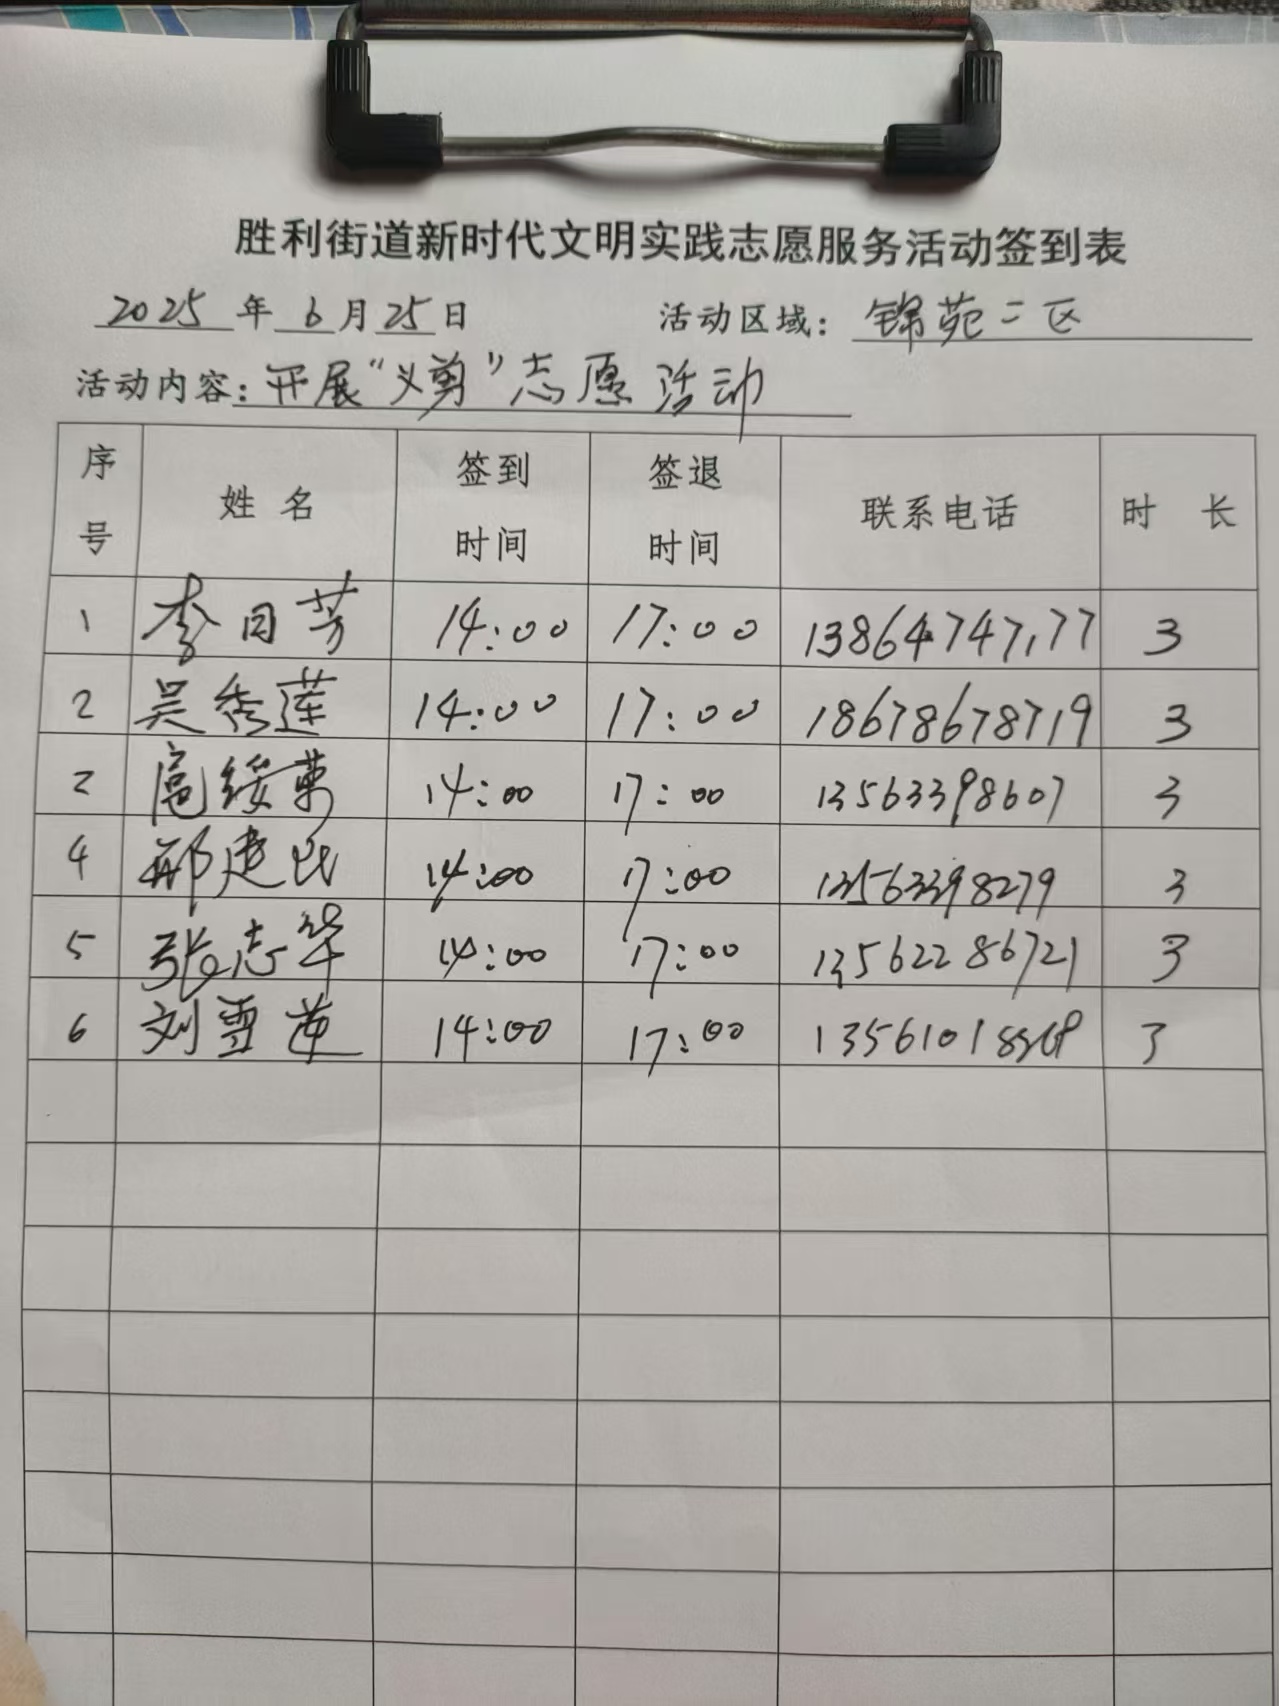 胜利街道新时代文明实践志愿服务活动签到表
2025 年 6 月 25 日 活动区域: 锦苑二区
活动内容: 开展“义剪”志愿活动
序号 姓名 签到时间 签退时间 联系电话 时长
1 李月芳 14:00 17:00 13864747177 3
2 吴秀莲 14:00 17:00 18678678719 3
3 扈绥荣 14:00 17:00 13563398607 3
4 邢建民 14:00 17:00 13563398279 3
5 张志华 14:00 17:00 13562286721 3
6 刘雪莲 14:00 17:00 3